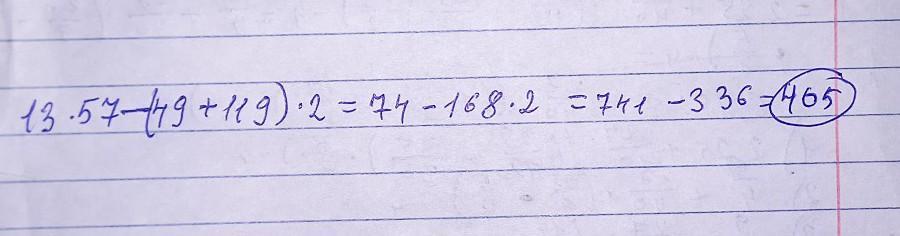 13·57-(49+119)·2=74-168·2=741-336=465